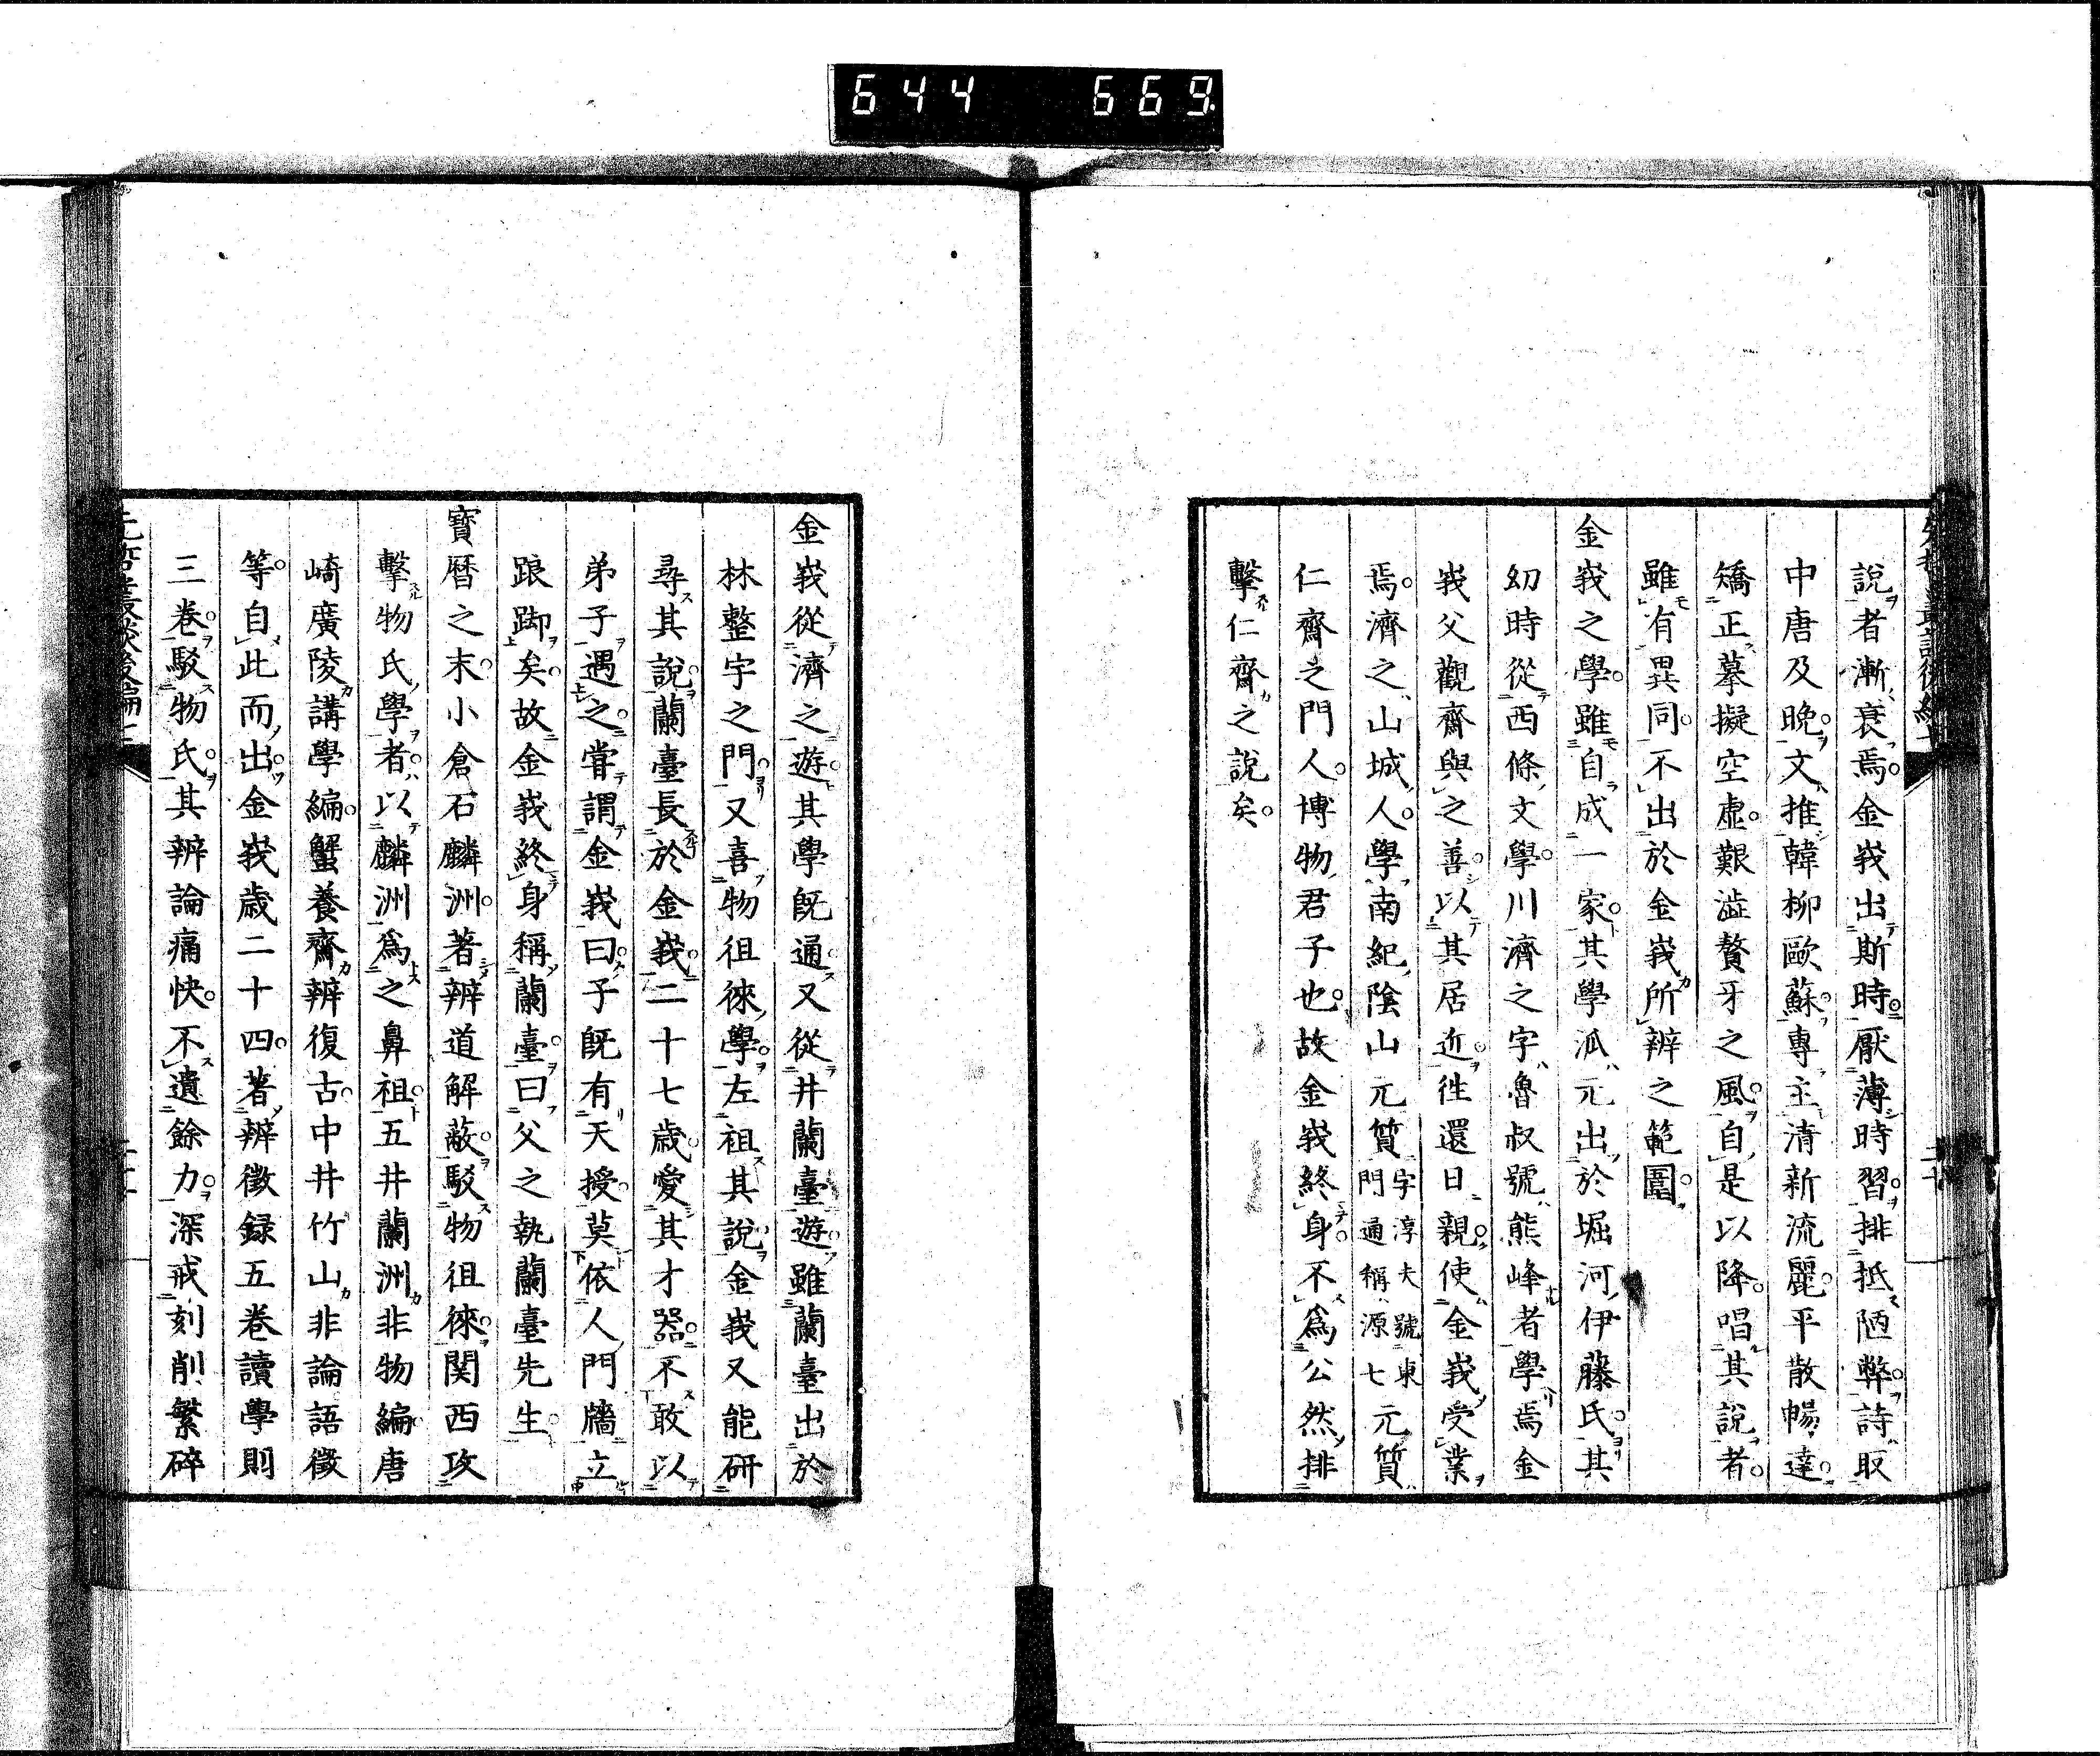 644 669
說者漸衰焉金峩出斯時厭薄時習排抵陋弊詩取
中唐及晚文推韓柳歐蘇專主清新流麗平散暢達
矯正摹擬空虛艱澁贅牙之風自是以降唱其說者
雖有異同不出於金峩所辨之範圍
金峩之學雖自成一家其學派元出於堀河伊藤氏其
幼時從西條文學川濟之字魯叔號熊峰者學焉金
峩父觀齋與之善以其居近徃還日親使金峩受業
焉濟之山城人學南紀陰山元質字淳夫號東門通稱源七元質
仁齋之門人博物君子也故金峩終身不爲公然排
擊仁齋之說矣
金峩從濟之遊其學旣通又從井蘭臺遊雖蘭臺出於
林整宇之門又喜物徂徠學左祖其說金峩又能研
尋其說蘭臺長於金峩二十七歲愛其才器不敢以
弟子遇之嘗謂金峩曰子旣有天授莫依人門牆立
踉踋矣故金峩終身稱蘭臺曰父之執蘭臺先生
寶曆之末小倉石麟洲著辨道解蔽駁物徂徠関西攻
擊物氏學者以麟洲爲之鼻祖五井蘭洲非物編唐
崎廣陵講學編蟹養齋辨復古中井竹山非論語徵
等自此而出金峩歲二十四著辨徵録五卷讀學則
三卷駁物氏其辨論痛快不遺餘力深戒刻削繁碎